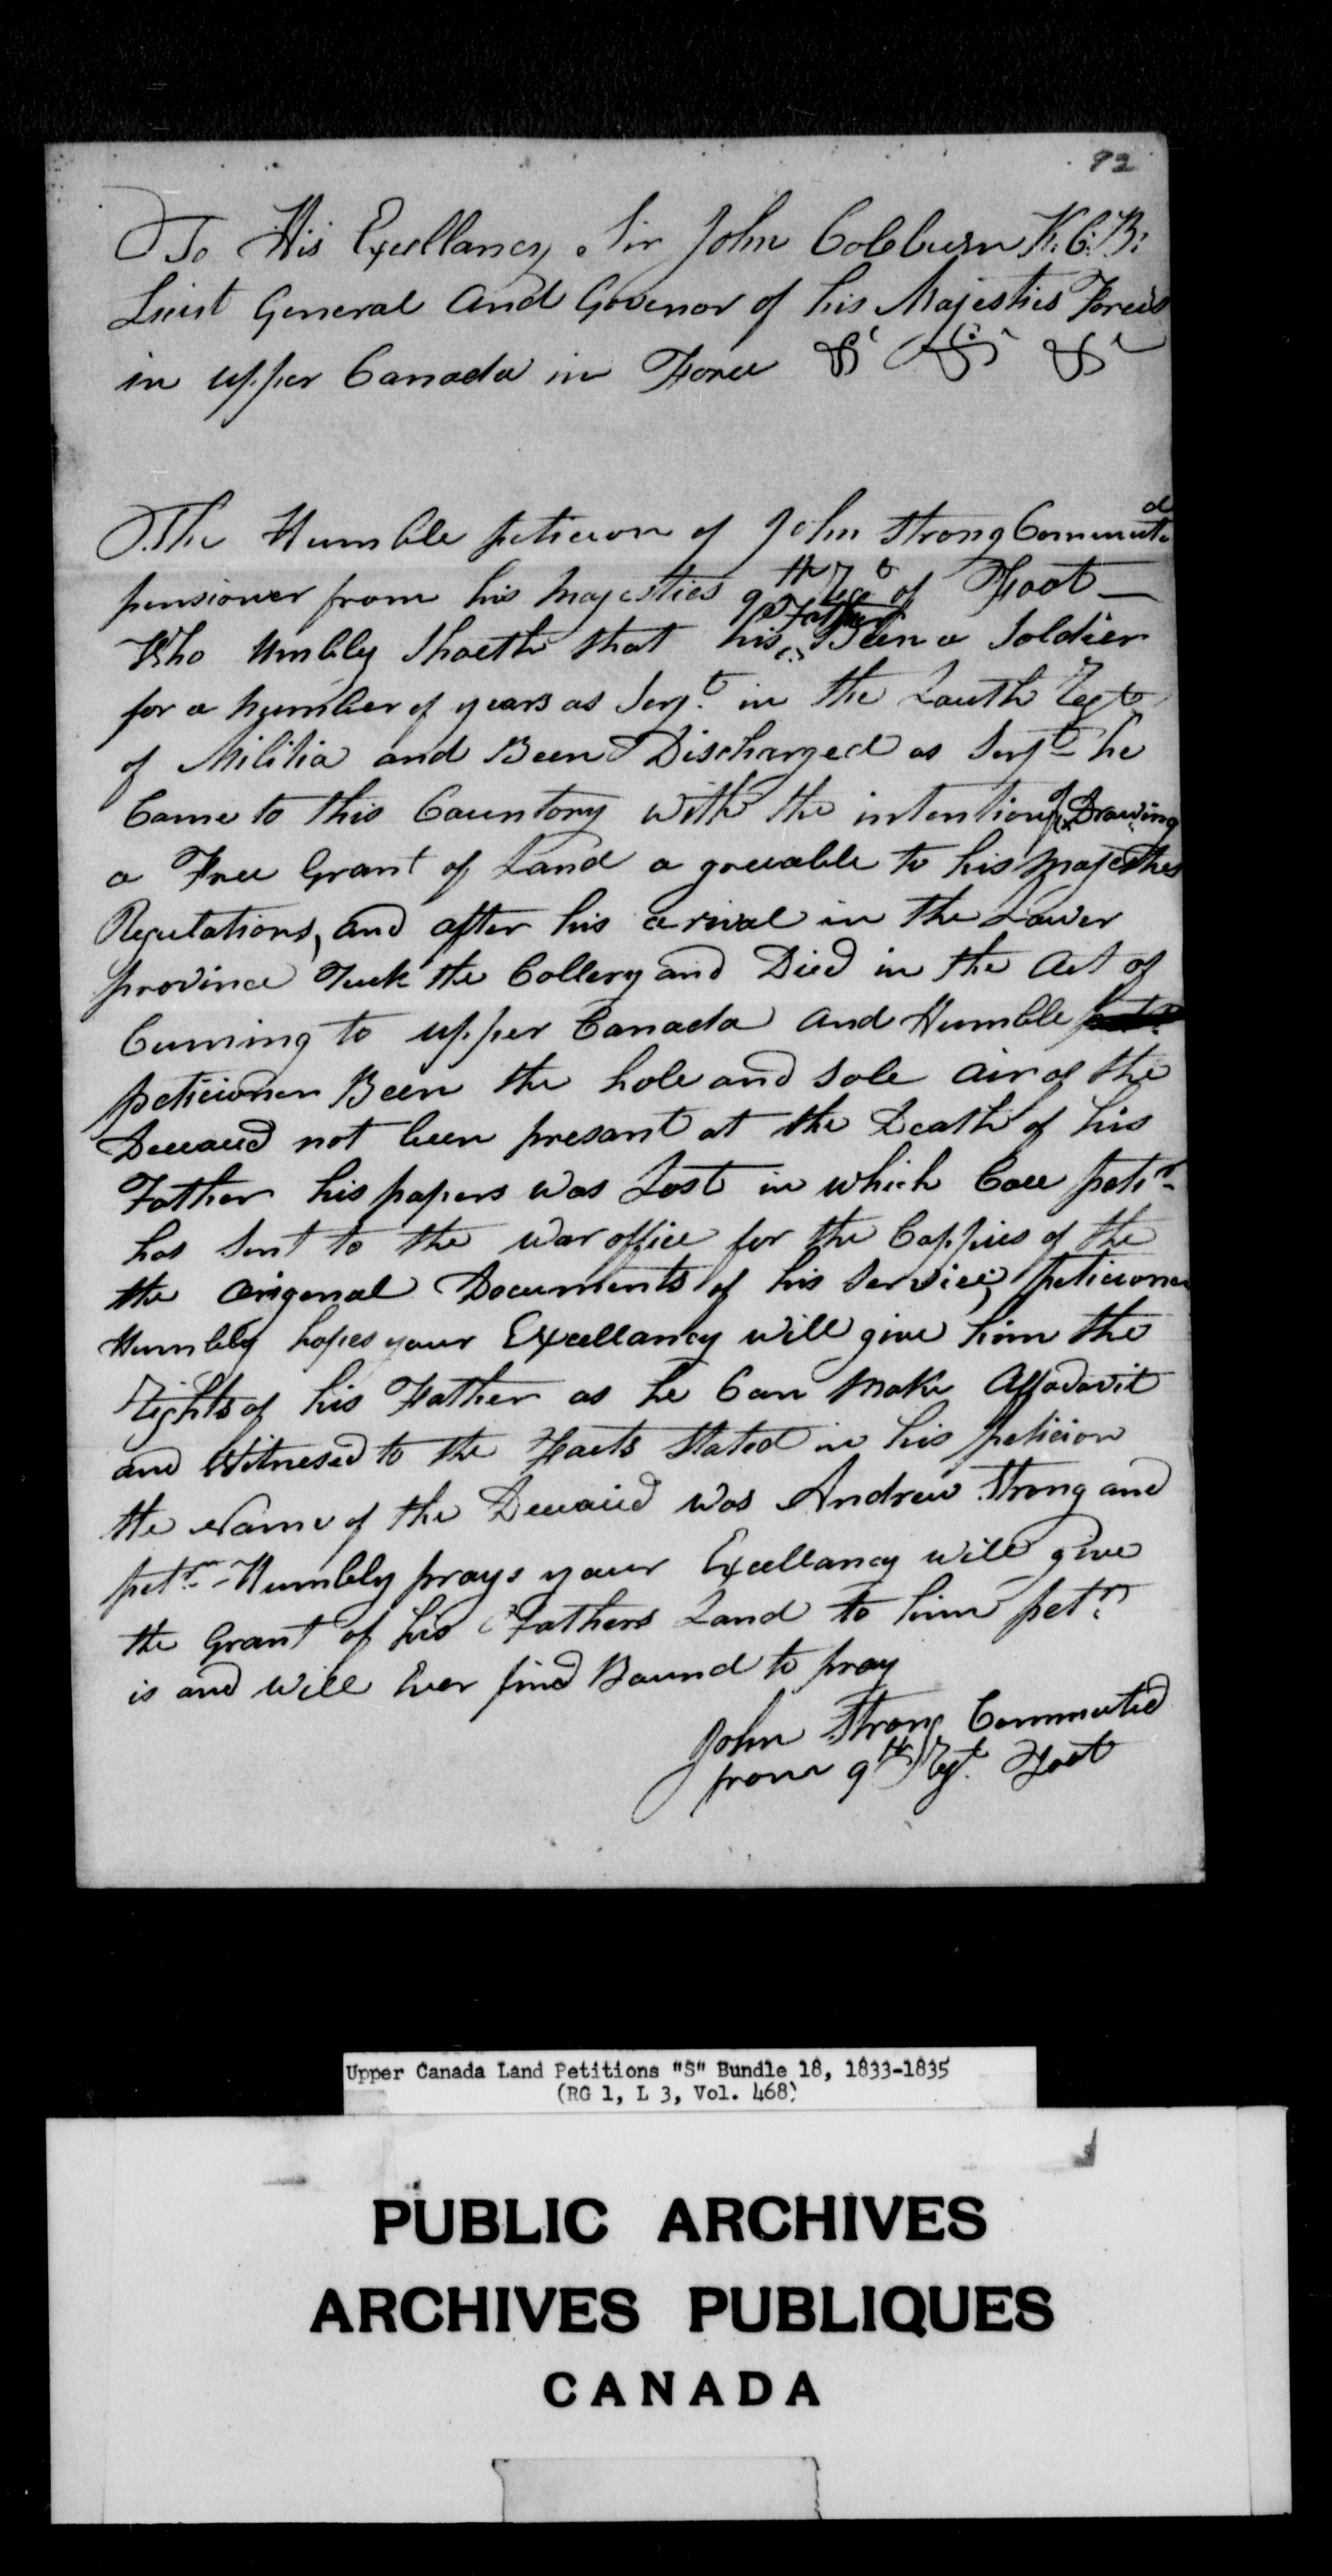 82
To His Excellancy Sir John Coleburn K:C:B:
Lieut General and Govenor of his Majesties Forces
in upper Canada in Force &c &c &c
The Humble peticion of John Strong Commutd
pensioner from his Majesties 9th Regt of Foot —
Who Umbly Shoeth that his Father Been a Soldier
for a Number of years as Sergt in the Louth Regt
of Militia and Been Discharged as Sergt he
Came to this Countory with the intention of Drawing
a Free Grant of Land a greeable to his Majesties
Regulations, and after his arival in the Lower
province Tuck the Collery and Died in the Act of
Cuming to upper Canada and Humble
peticioner Been the hole and Sole air of the
Deceaced not been presant at the Death of his
Father his papers was Lost in which Case petr
has Sent to the war office for the Coppies of the
the origenal Documents of his Service, peticioner
Humbly hopes your Excellancy will give him the
Rights of his Father as he Can Make Affodavit
and Witnesed to the Facts Stated in his peticion
the Name of the Deceaced was Andrew Strong and
petr Humbly prays your Excellancy will give
the Grant of his Fathers Land to him petr
is and will Ever find Bound to pray
John Strong Commuted
from 9th Regt Foot
Upper Canada Land Petitions "S" Bundle 18, 1833-1835
(RG 1, L 3, Vol. 468)
PUBLIC ARCHIVES
ARCHIVES PUBLIQUES
CANADA